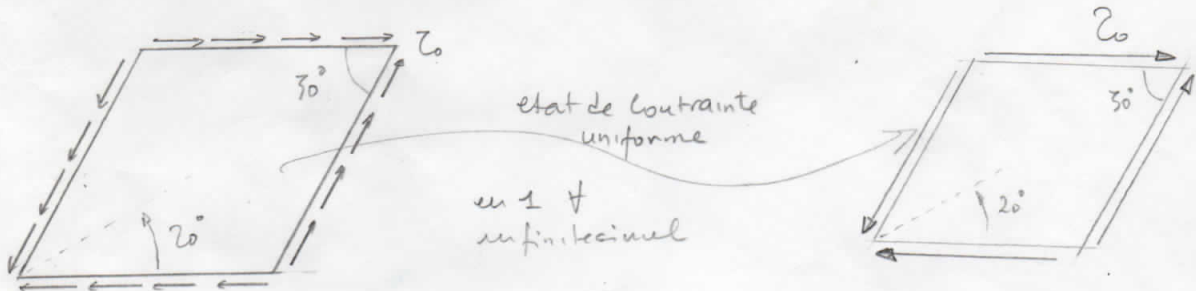 τ₀
30°
etat de contrainte
uniforme
en 1 ∀
infinitesimal
20°
τ₀
30°
20°